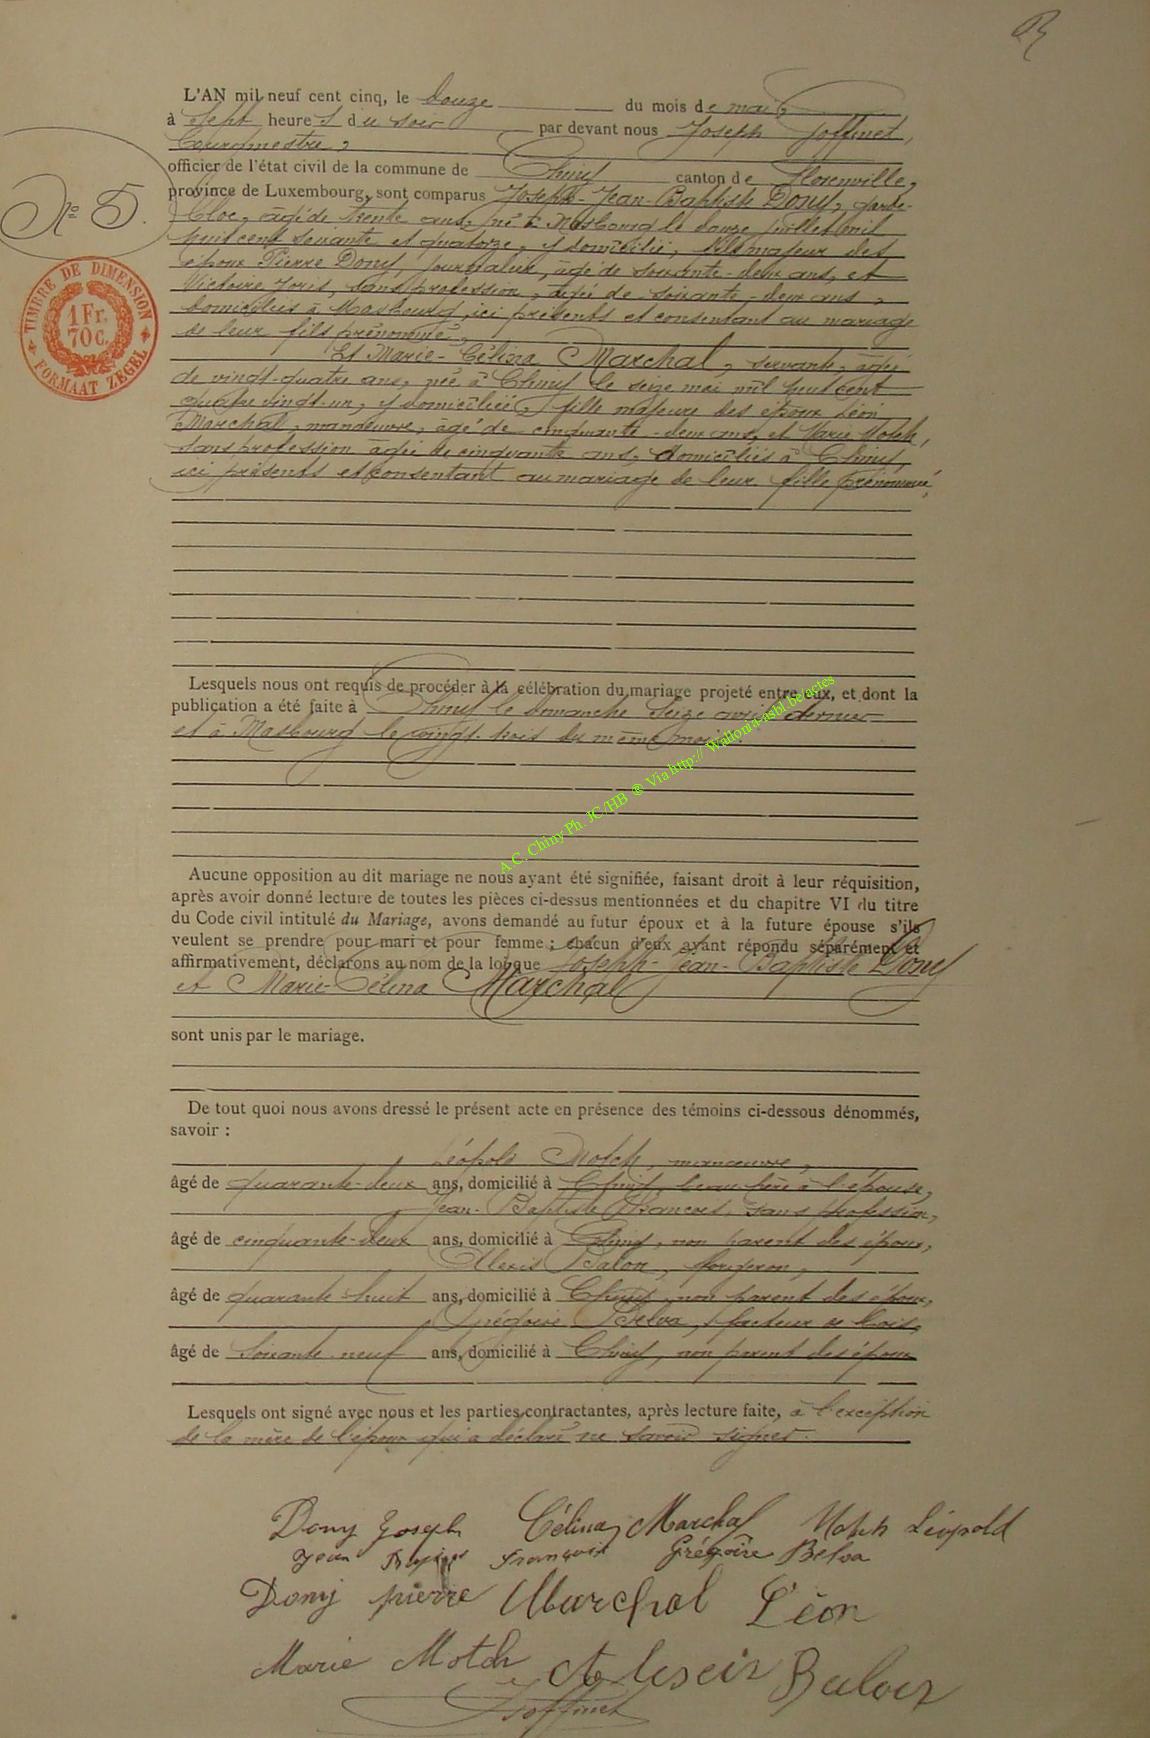 L'AN mil neuf cent cinq, le douze du mois de mai,
à sept heures du soir par devant nous Joseph Goffinet,
Bourgmestre,
officier de l'état civil de la commune de Chiny canton de Florenville,
province de Luxembourg, sont comparus Joseph-Jean-Baptiste Dony, garde-
bloc, âgé de trente ans, né à Masbourg le douze juillet mil
huit cent soixante et quatorze, y domicilié, fils majeur des
époux Pierre Dony, journalier, âgé de soixante-deux ans, et
Victoire Joris, sans profession, âgée de soixante-deux ans,
domiciliés à Masbourg, ici présents et consentant au mariage
de leur fils prénommé,
Et Marie-Célina Marchal, servante, âgée
de vingt-quatre ans, née à Chiny le seize mai mil huit cent
quatre vingt-un, y domiciliée, fille majeure des époux Léon
Marchal, manœuvre, âgé de cinquante-deux ans, et Marie Motch,
sans profession âgée de cinquante ans, domiciliés à Chiny,
ici présents et consentant au mariage de leur fille prénommée,
N° 5.
TIMBRE DE DIMENSION
1 Fr.
70 c.
FORMAAT ZEGEL
Lesquels nous ont requis de procéder à la célébration du mariage projeté entre eux, et dont la
publication a été faite à Chiny le dimanche seize avril dernier
et à Masbourg le vingt-trois du même mois.
A.C. Chiny Ph. JC/HB ® Via http:// Wallonia-asbl.be/actes
Aucune opposition au dit mariage ne nous ayant été signifiée, faisant droit à leur réquisition,
après avoir donné lecture de toutes les pièces ci-dessus mentionnées et du chapitre VI du titre
du Code civil intitulé du Mariage, avons demandé au futur époux et à la future épouse s'ils
veulent se prendre pour mari et pour femme ; chacun d'eux ayant répondu séparément et
affirmativement, déclarons au nom de la loi que Joseph-Jean-Baptiste Dony
et Marie-Célina Marchal
sont unis par le mariage.
De tout quoi nous avons dressé le présent acte en présence des témoins ci-dessous dénommés,
savoir :
Léopold Motch, manœuvre,
âgé de quarante-deux ans, domicilié à Chiny, beau-frère à l'épouse,
Jean-Baptiste François, sans profession,
âgé de cinquante-deux ans, domicilié à Chiny, non parent des époux,
Alexis Balon, forgeron,
âgé de quarante huit ans, domicilié à Chiny, non parent des époux,
Grégoire Belva, facteur de bois,
âgé de soixante-neuf ans, domicilié à Chiny, non parent des époux
Lesquels ont signé avec nous et les parties contractantes, après lecture faite, à l'exception
de la mère de l'époux qui a déclaré ne savoir signer.
Dony Joseph Célina Marchal Motch Léopold
Jean François Grégoire Belva
Dony pierre Marchal Léon
Marie Motch Alexis Balon
J Goffinet